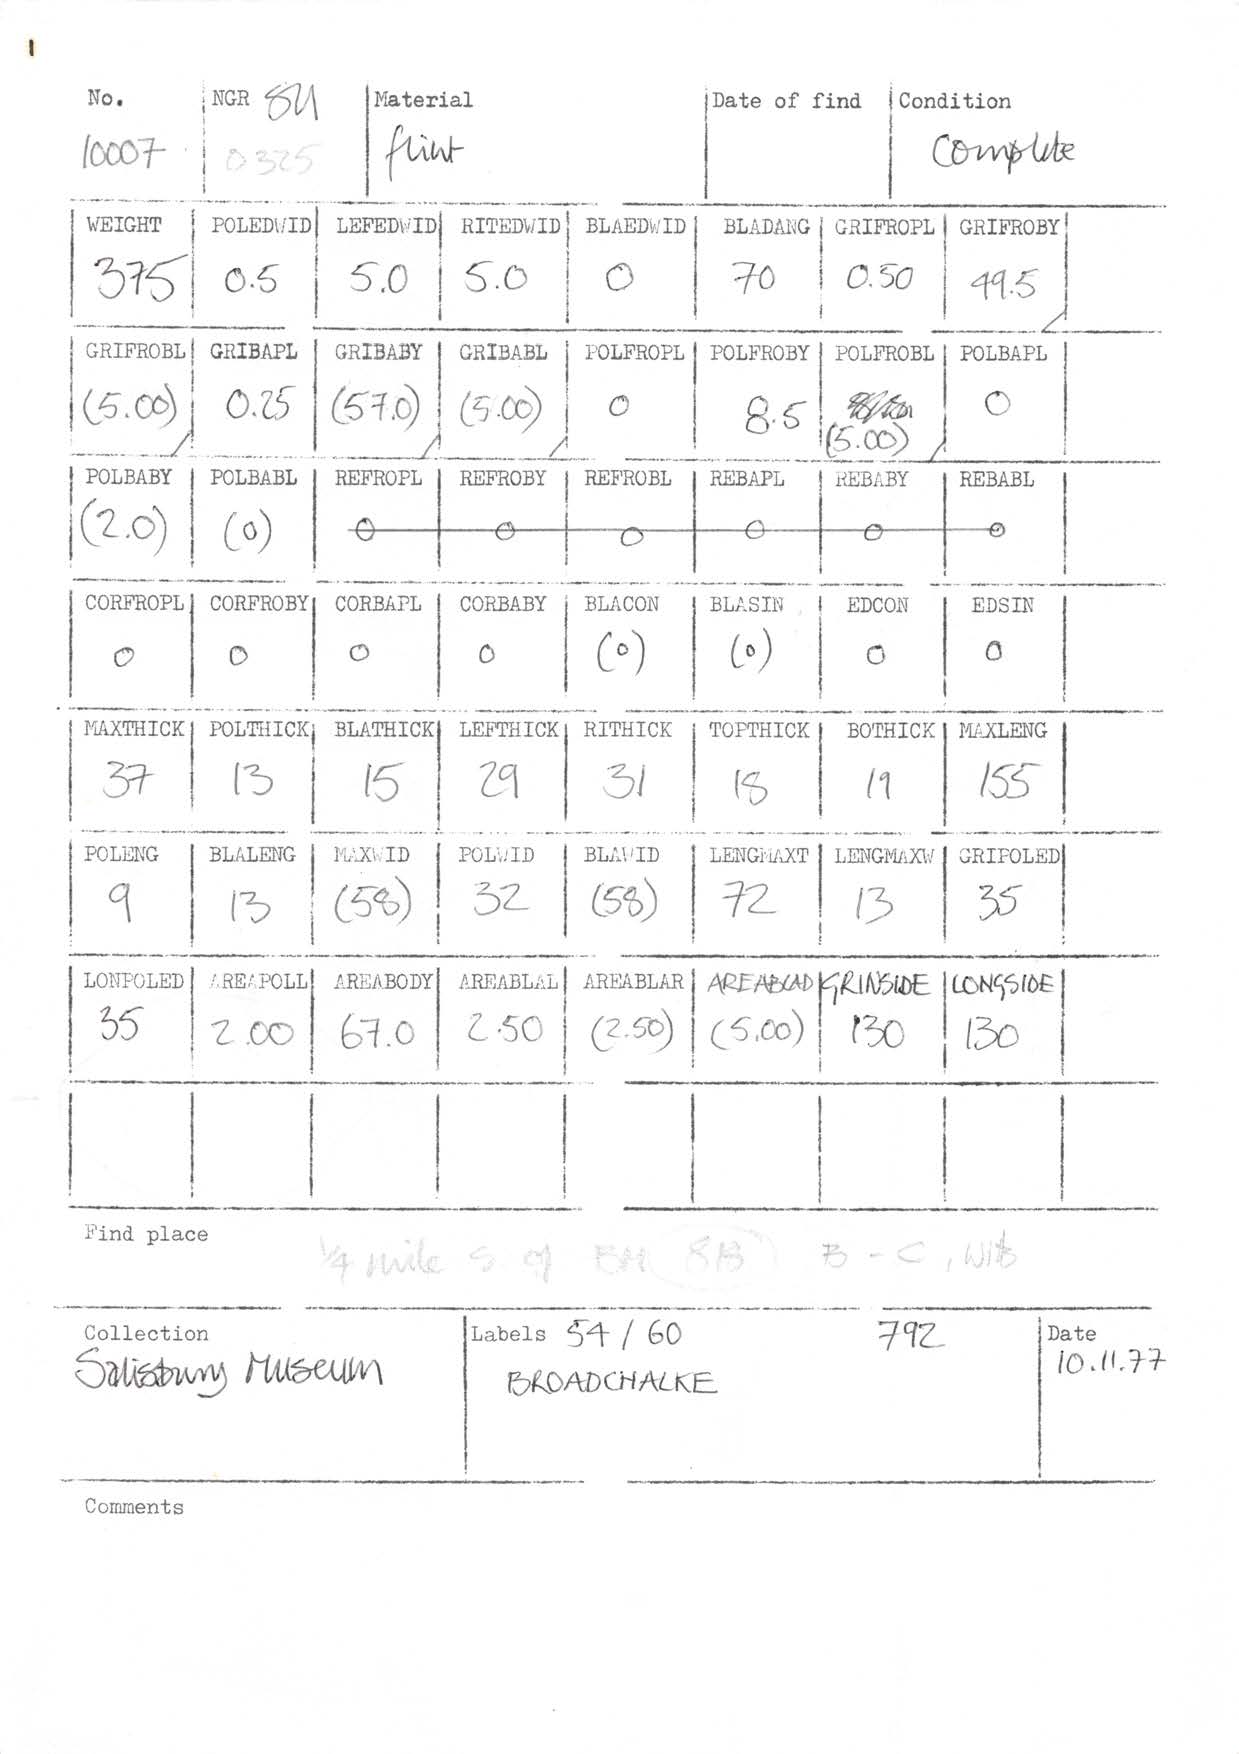 No. NGR SU Material Date of find Condition
10007 0325 flint Complete
WEIGHT POLEDWID LEFEDWID RITEDWID BLAEDWID BLADANG GRIFROPL GRIFROBY
375 0.5 5.0 5.0 0 70 0.50 49.5
GRIFROBL GRIBAPL GRIBABY GRIBABL POLFROPL POLFROBY POLFROBL POLBAPL
(5.00) 0.25 (57.0) (5.00) 0 8.5 (5.00) 0
POLBABY POLBABL REFROPL REFROBY REFROBL REBAPL REBABY REBABL
(2.0) (0) 0 0 0 0 0 0
CORFROPL CORFROBY CORBAPL CORBABY BLACON BLASIN EDCON EDSIN
0 0 0 0 (0) (0) 0 0
MAXTHICK POLTHICK BLATHICK LEFTHICK RITHICK TOPTHICK BOTHICK MAXLENG
37 13 15 29 31 18 19 155
POLENG BLALENG MAXWID POLWID BLAWID LENGMAXT LENGMAXW GRIPOLED
9 13 (58) 32 (58) 72 13 35
LONPOLED AREAPOLL AREABODY AREABLAL AREABLAR AREABLAD GRINSIDE LONGSIDE
35 2.00 67.0 2.50 (2.50) (5.00) 130 130
Find place
1/4 mile S. of B - C, Wilts
Collection Labels 54/60 792 Date
Salisbury Museum BROADCHALKE 10.11.77
Comments